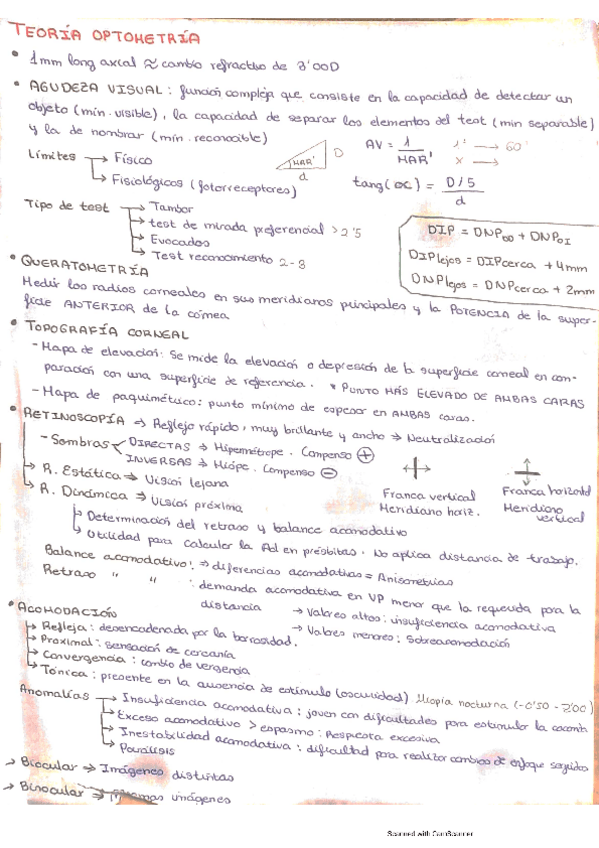 TEORÍA OPTOMETRÍA
• 1mm long axial ≈ cambio refractivo de 3'00D
• AGUDEZA VISUAL: función compleja que consiste en la capacidad de detectar un
objeto (mín. visible), la capacidad de separar los elementos del test (mín separable)
y la de nombrar (mín. reconocible)
Límites → Físico
→ Fisiológicos (fotorreceptores)
MAR' D
d
AV = 1 / MAR'
1' → 60
x →
tang(α) = D/5 / d
Tipo de test → Tambor
→ test de mirada preferencial > 2'5
→ Evocados
→ Test reconocimiento 2-3
DIP = DNP OD + DNP OI
DIP lejos = DIP cerca + 4mm
DNP lejos = DNP cerca + 2mm
• QUERATOMETRÍA
Medir los radios corneales en sus meridianos principales y la POTENCIA de la super-
ficie ANTERIOR de la córnea
• TOPOGRAFÍA CORNEAL
- Mapa de elevación: Se mide la elevación o depresión de la superficie corneal en com-
paración con una superficie de referencia. * PUNTO MÁS ELEVADO DE AMBAS CARAS
- Mapa de paquimétrico: punto mínimo de espesor en AMBAS caras.
• RETINOSCOPÍA → Reflejo rápido, muy brillante y ancho → Neutralización
- Sombras DIRECTAS → Hipermétrope. Compenso +
INVERSAS → Miope. Compenso -
→ R. Estática → Visión lejana
→ R. Dinámica → Visión próxima
Franca vertical
Meridiano horiz.
Franca horizontal
Meridiano
vertical
→ Determinación del retraso y balance acomodativo
→ Utilidad para calcular la Ad en présbitas. No aplica distancia de trabajo.
Balance acomodativo: → diferencias acomodativas = Anisometrías
Retraso " " : demanda acomodativa en VP menor que la requerida para la
distancia → Valores altos: insuficiencia acomodativa
→ Valores menores: Sobreacomodación
• ACOMODACIÓN
→ Refleja: desencadenada por la borrosidad.
→ Proximal: sensación de cercanía
→ Convergencia: cambio de vergencia
→ Tónica: presente en la ausencia de estímulo (oscuridad) Miopía nocturna (-0'50 - 2'00)
Anomalías → Insuficiencia acomodativa: joven con dificultades para estimular la
→ Exceso acomodativo > espasmo: Respuesta excesiva
→ Inestabilidad acomodativa: dificultad para realizar cambios de enfoque seguidos
→ Parálisis
→ Biocular → Imágenes distintas
→ Binocular → Mismas imágenes
Scanned with CamScanner